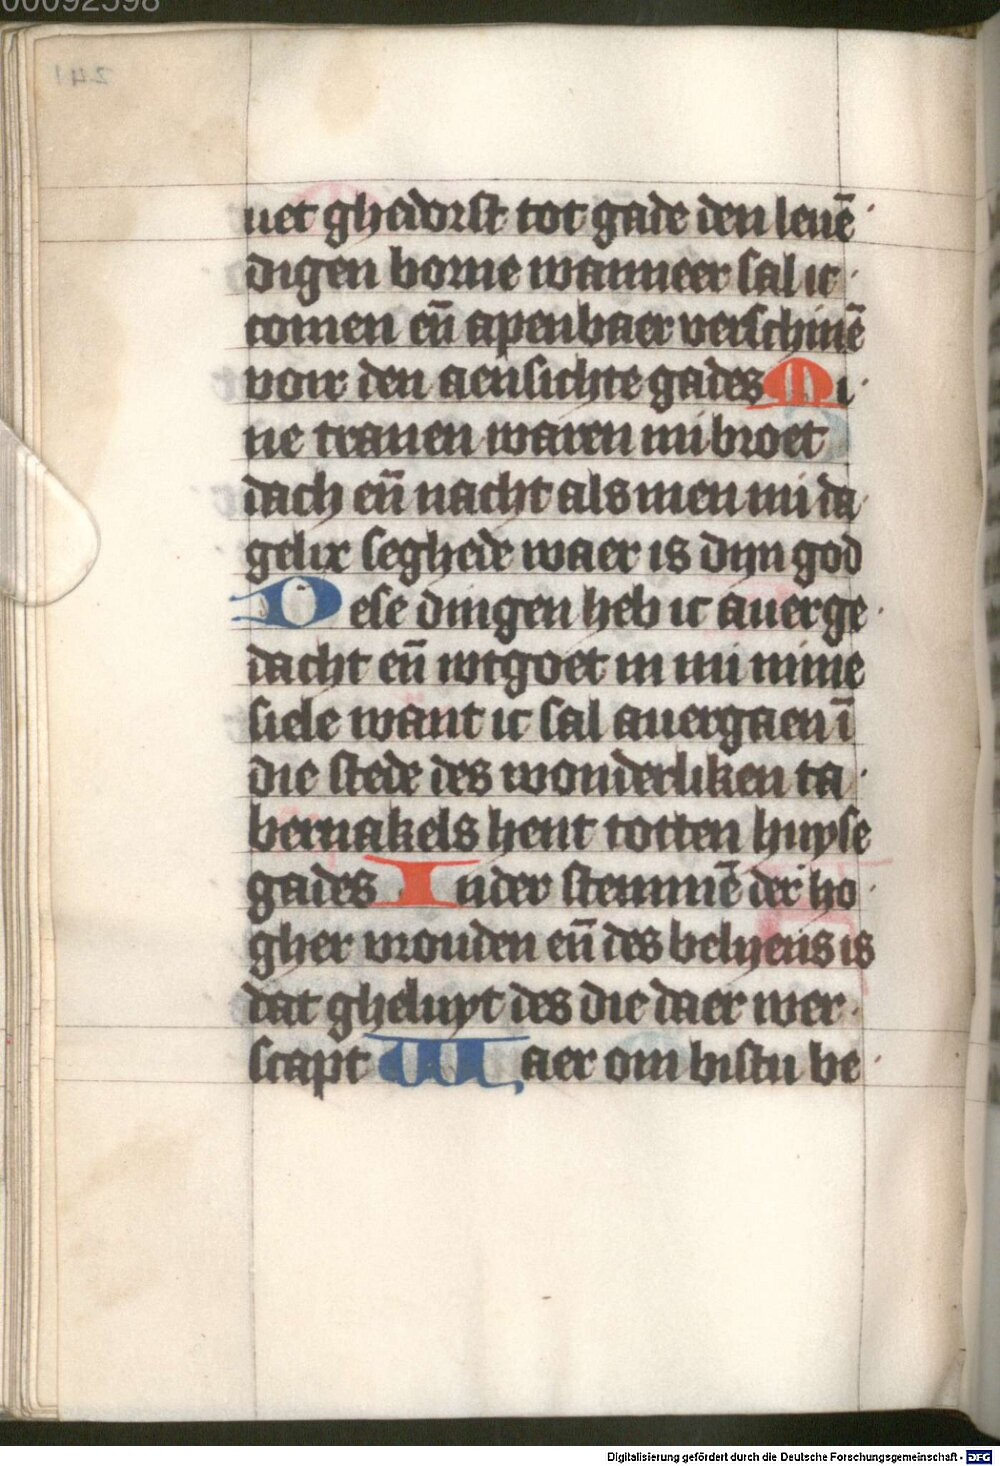 00092598
241
uet ghedorst tot gade den leuē
digen borne wanneer sal ic
comen eñ apenbaer verschinē
voir den aensichte gades Mi
ne tranen waren mi broet
dach eñ nacht als men mi da
gelix seghede waer is dijn god
Dese dingen heb ic auer ge
dacht eñ wtgoet in mi mine
siele want ic sal auergaen ī
die stede des wonderliken ta
bernakels hent totten huyse
gades Inder stemmē der ho
gher vrouden eñ des belyens is
dat gheluyt des die daer wer
scapt Waer om bistu be
Digitalisierung gefördert durch die Deutsche Forschungsgemeinschaft - DFG